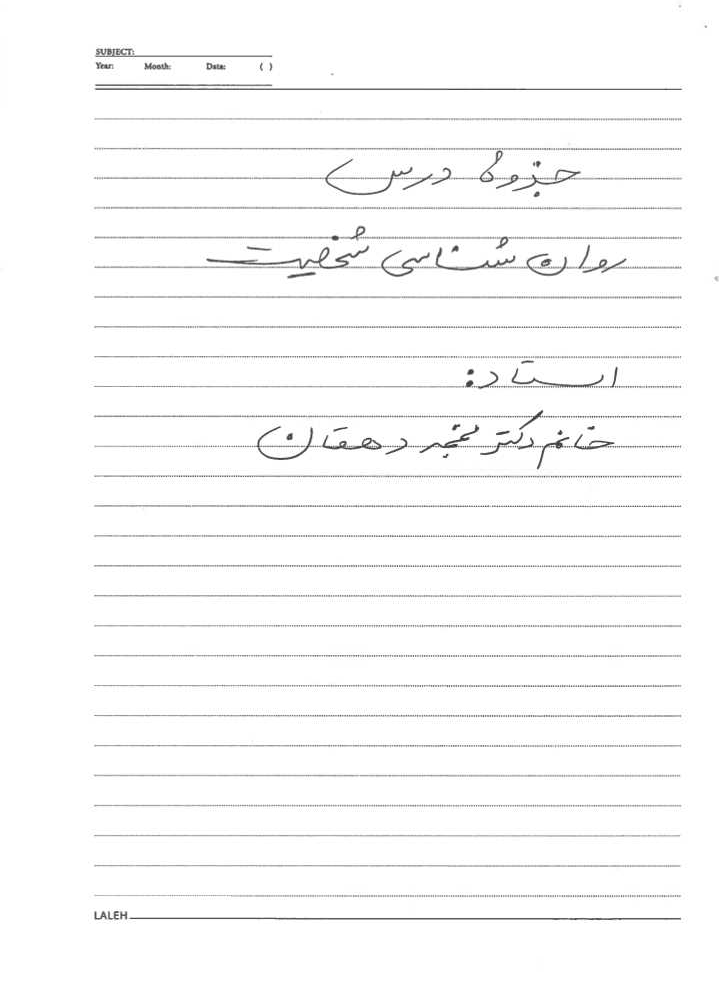 SUBJECT:
Year: Month: Date: ( )
جزوهٔ درس
روان شناسی شخصیت
استاد:
خانم دکتر دهقان
LALEH